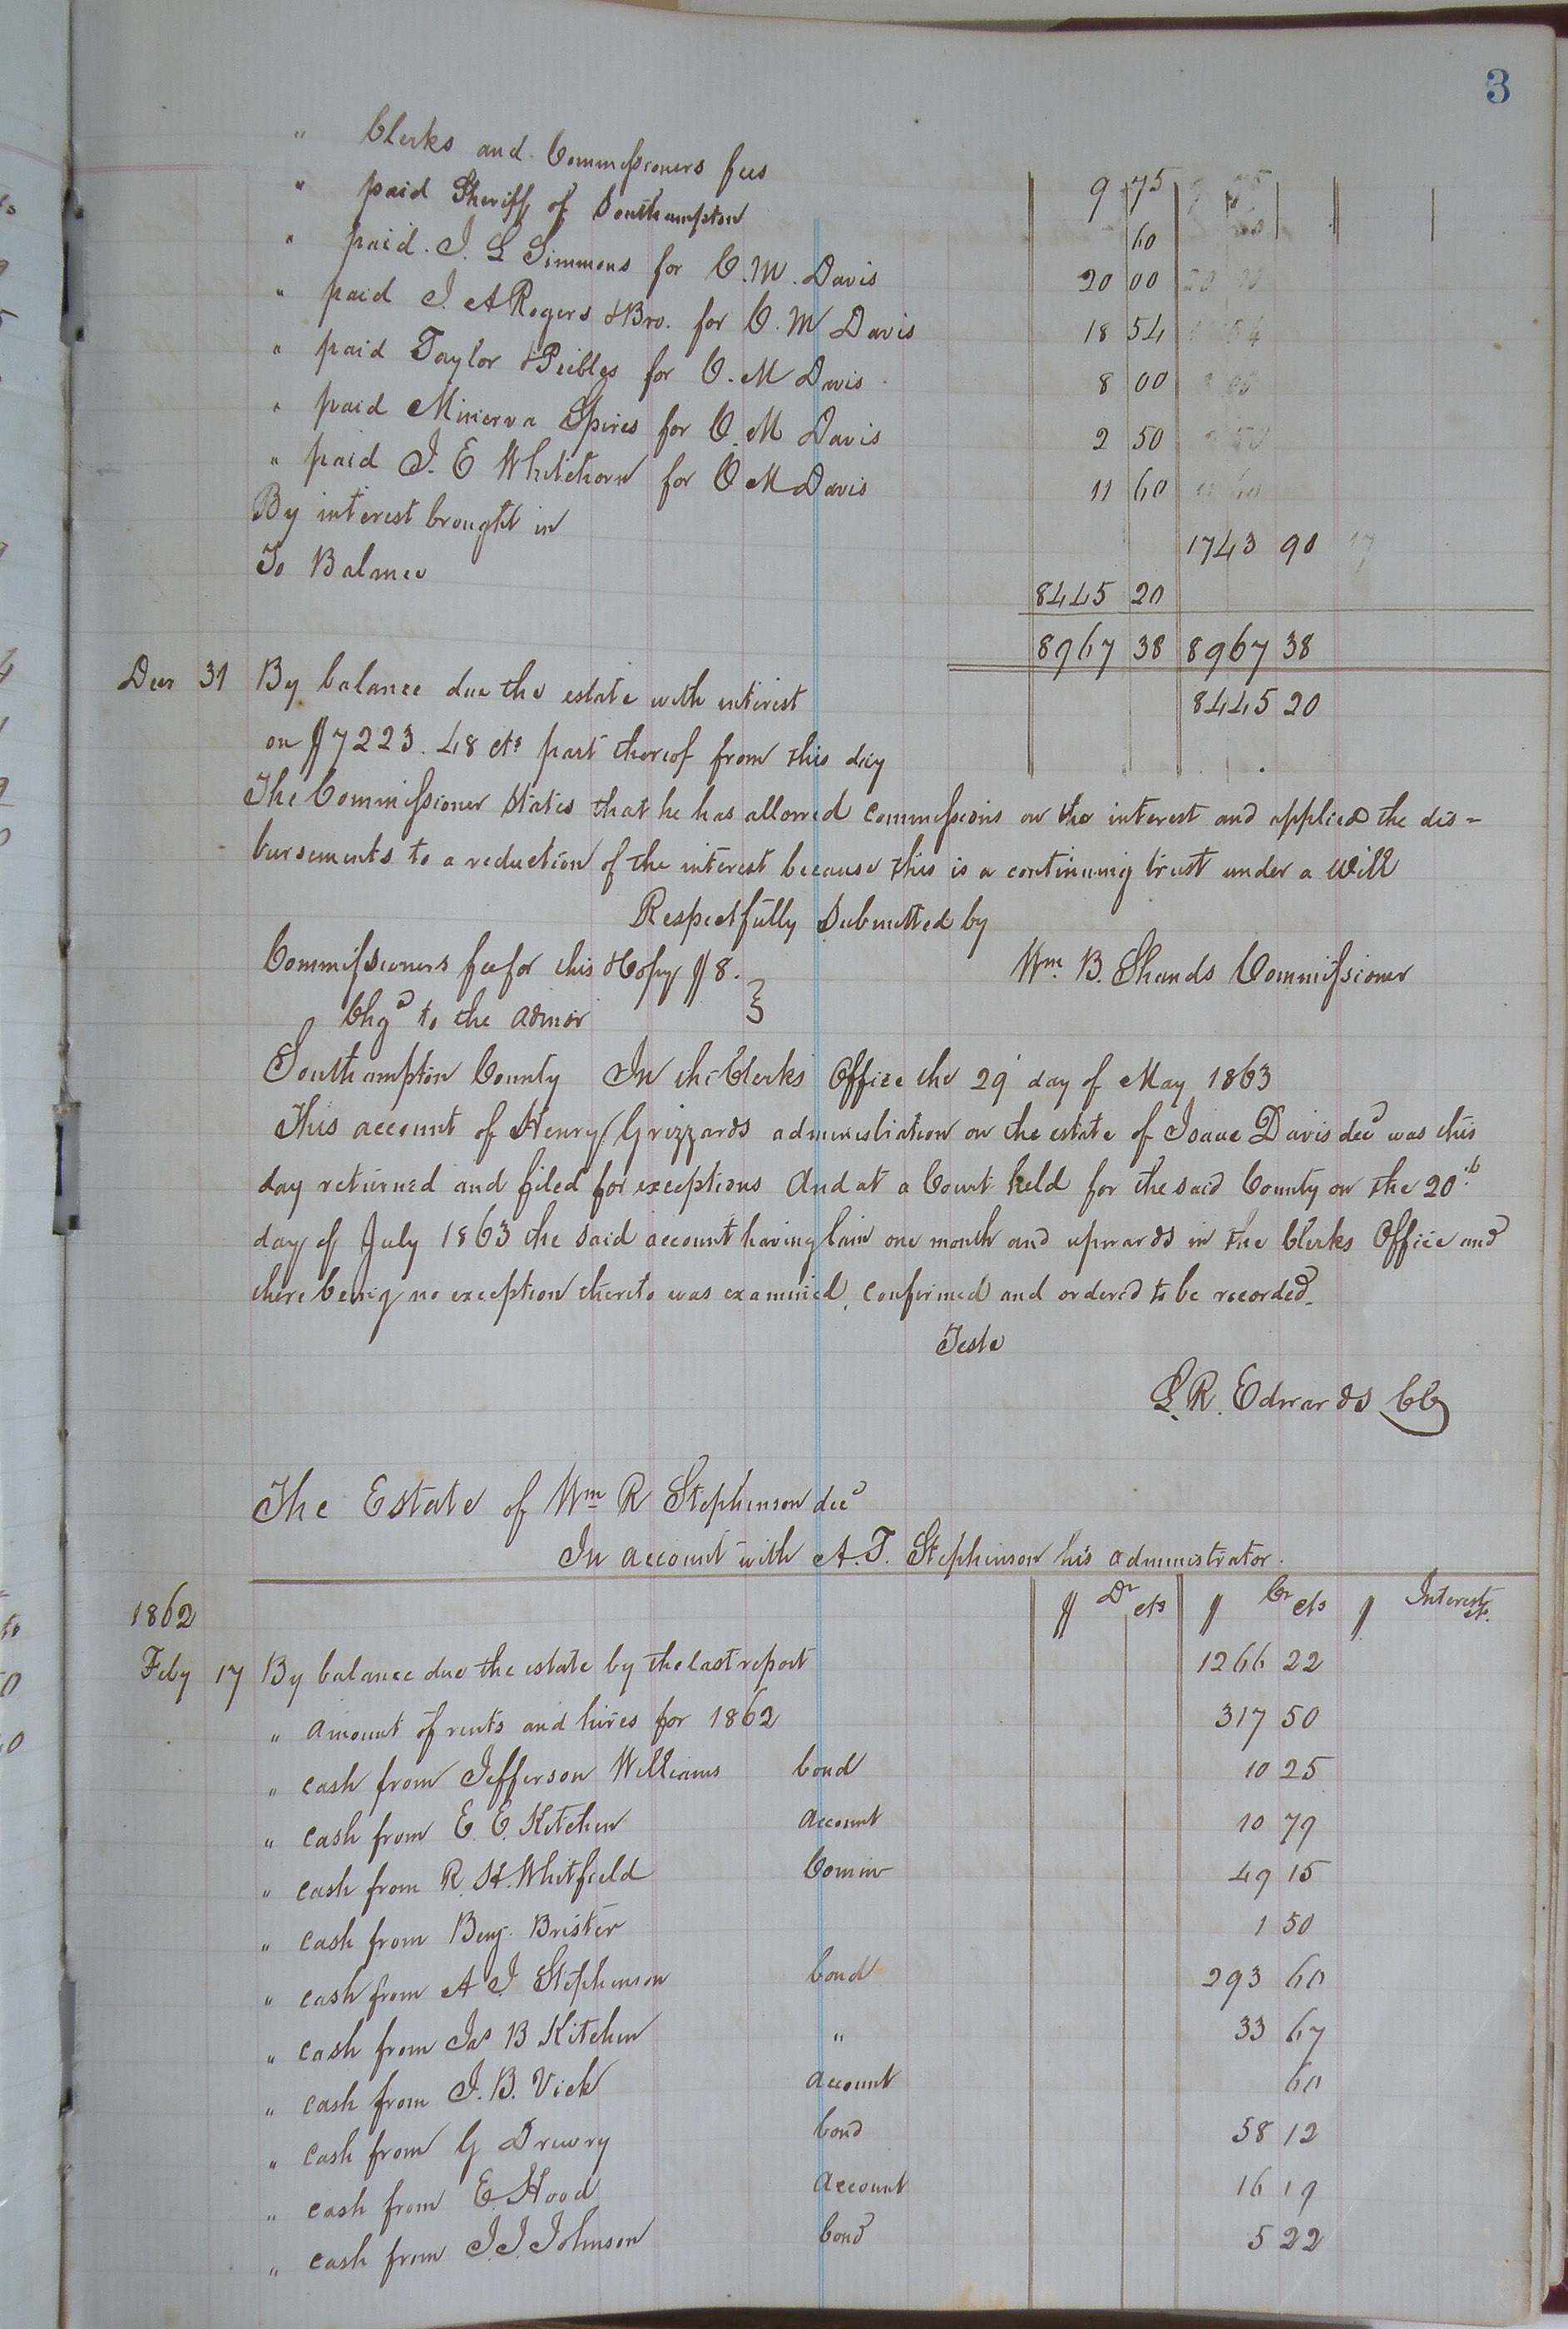 3
" Clerks and Commissioners fees 9 75
" paid Sheriff of Southampton 60
" paid J. L Simmons for C. M. Davis 20 00
" paid J. A Rogers & Bro. for C. M Davis 18 54
" paid Taylor & Peebles for C. M Davis 8 00
" paid Minerva Spires for C. M Davis 2 50
" paid J. E Whitehorn for C M Davis 11 60
By interest brought in 1743 90
To Balance 8445 20
8967 38 8967 38
Decr 31 By balance due the estate with interest 8445 20
on $7223.48 cts part thereof from this day
The Commissioner states that he has allowed commissions on the interest and applied the dis=
bursements to a reduction of the interest because this is a continuing trust under a will
Respectfully Submitted by
Commissioners fee for this & Copy $8. Wm B. Shands Commissioner
Chgd to the admor }
Southampton County In the Clerks Office the 29 day of May 1863
This account of Henry Grizzards administration on the estate of Isaac Davis decd was this
day returned and filed for exceptions And at a Court held for the said County on the 20th
day of July 1863 the said account having lain one month and upwards in the Clerks Office and
there being no exception thereto was examined, confirmed and ordered to be recorded.
Teste
L. R. Edwards CC
The Estate of Wm R Stephenson decd
In account with A. T. Stephenson his administrator.
1862 $ Dr cts $ Cr cts $ Interest cts.
Feby 17 By balance due the estate by the last report 1266 22
" amount of rents and hires for 1862 317 50
" cash from Jefferson Williams bond 10 25
" cash from E. E. Kitchen account 10 79
" cash from R. H. Whitfield Comm 49 15
" cash from Benj. Brister 1 50
" cash from A J Stephenson bond 293 60
" cash from Jas B Kitchen " 33 67
" cash from J. B. Vick account 60
" cash from G Drewry bond 58 12
" cash from E. Hood account 16 19
" cash from J. J. Johnson bond 5 22